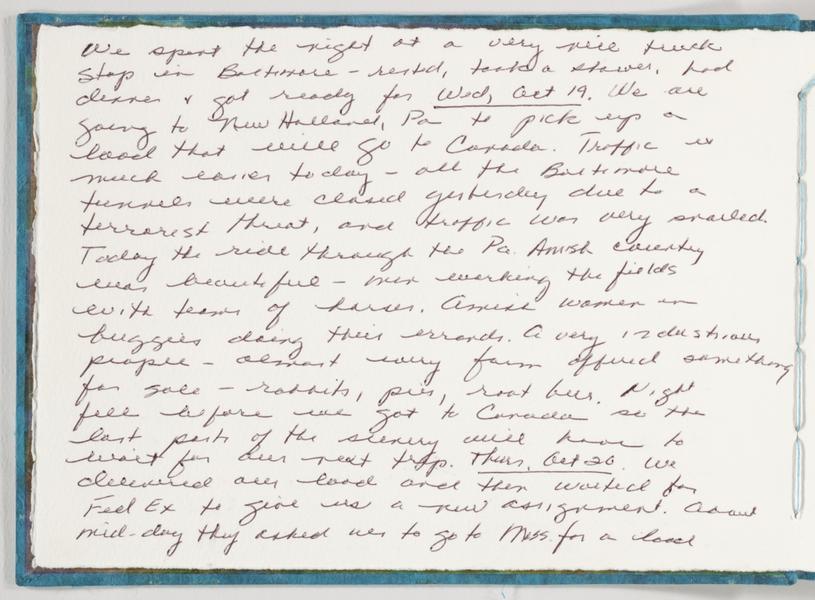 We spent the night at a very nice truck
stop in Baltimore - rested, took a shower, had
dinner & got ready for Wed, Oct 19. We are
going to New Holland, Pa to pick up a
load that will go to Canada. Traffic is
much easier today - all the Baltimore
tunnels were closed yesterday due to a
terrorest threat, and traffic was very snarled.
Today the ride through the Pa. Amish country
was beautiful - men working the fields
with teams of horses. Amish women in
buggies doing their errands. A very industrious
people - almost every farm offered something
for sale - rabbits, pies, root beer. Night
fell before we got to Canada so the
last part of the scenery will have to
wait for our next trip. Thurs, Oct 20. We
delivered our load and then waited for
Fed Ex to give us a new assignment. About
mid-day they asked us to go to Mass. for a load